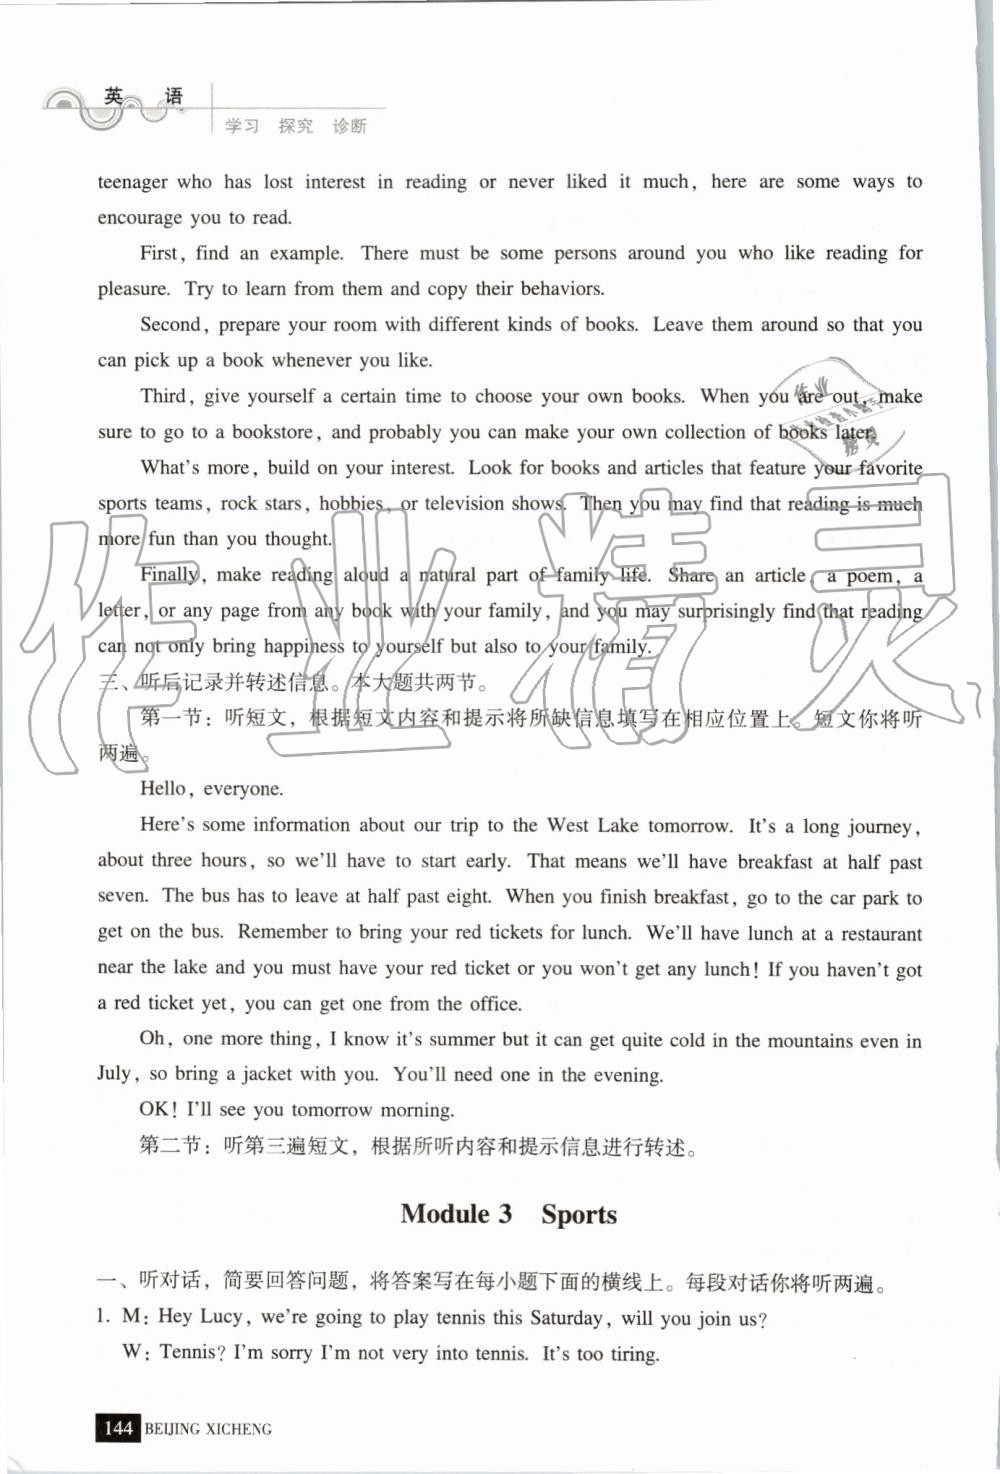 英 语
学习 探究 诊断
teenager who has lost interest in reading or never liked it much, here are some ways to
encourage you to read.
First, find an example. There must be some persons around you who like reading for
pleasure. Try to learn from them and copy their behaviors.
Second, prepare your room with different kinds of books. Leave them around so that you
can pick up a book whenever you like.
Third, give yourself a certain time to choose your own books. When you are out, make
sure to go to a bookstore, and probably you can make your own collection of books later.
What's more, build on your interest. Look for books and articles that feature your favorite
sports teams, rock stars, hobbies, or television shows. Then you may find that reading is much
more fun than you thought.
Finally, make reading aloud a natural part of family life. Share an article, a poem, a
letter, or any page from any book with your family, and you may surprisingly find that reading
can not only bring happiness to yourself but also to your family.
三、听后记录并转述信息。本大题共两节。
第一节：听短文，根据短文内容和提示将所缺信息填写在相应位置上。短文你将听
两遍。
Hello, everyone.
Here's some information about our trip to the West Lake tomorrow. It's a long journey,
about three hours, so we'll have to start early. That means we'll have breakfast at half past
seven. The bus has to leave at half past eight. When you finish breakfast, go to the car park to
get on the bus. Remember to bring your red tickets for lunch. We'll have lunch at a restaurant
near the lake and you must have your red ticket or you won't get any lunch! If you haven't got
a red ticket yet, you can get one from the office.
Oh, one more thing, I know it's summer but it can get quite cold in the mountains even in
July, so bring a jacket with you. You'll need one in the evening.
OK! I'll see you tomorrow morning.
第二节：听第三遍短文，根据所听内容和提示信息进行转述。
Module 3 Sports
一、听对话，简要回答问题，将答案写在每小题下面的横线上。每段对话你将听两遍。
1. M: Hey Lucy, we're going to play tennis this Saturday, will you join us?
W: Tennis? I'm sorry I'm not very into tennis. It's too tiring.
144 BEIJING XICHENG
作业精灵